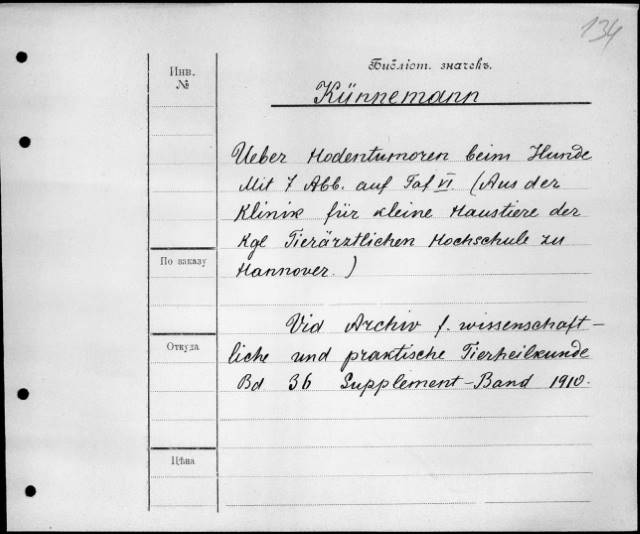 134
Инв.
№
Библіот. значекъ.
Künnemann
Ueber Hodentumoren beim Hunde
Mit 7 Abb. auf Taf VI (Aus der
Klinik für kleine Haustiere der
Kgl Tierärztlichen Hochschule zu
Hannover.)
По заказу
Vid Archiv f. wissenschaft-
Откуда
liche und praktische Tierheilkunde
Bd 36 Supplement-Band 1910.
Цѣна